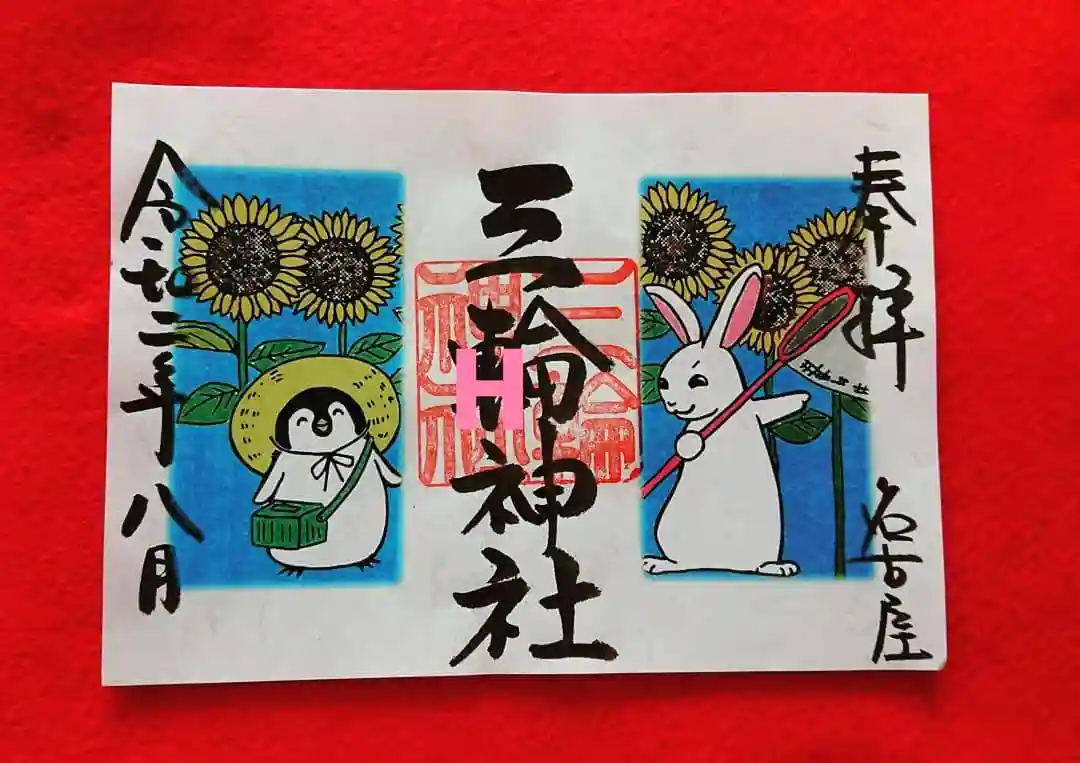 奉拝 名古屋
三輪神社
三輪神社
H
令和二年八月